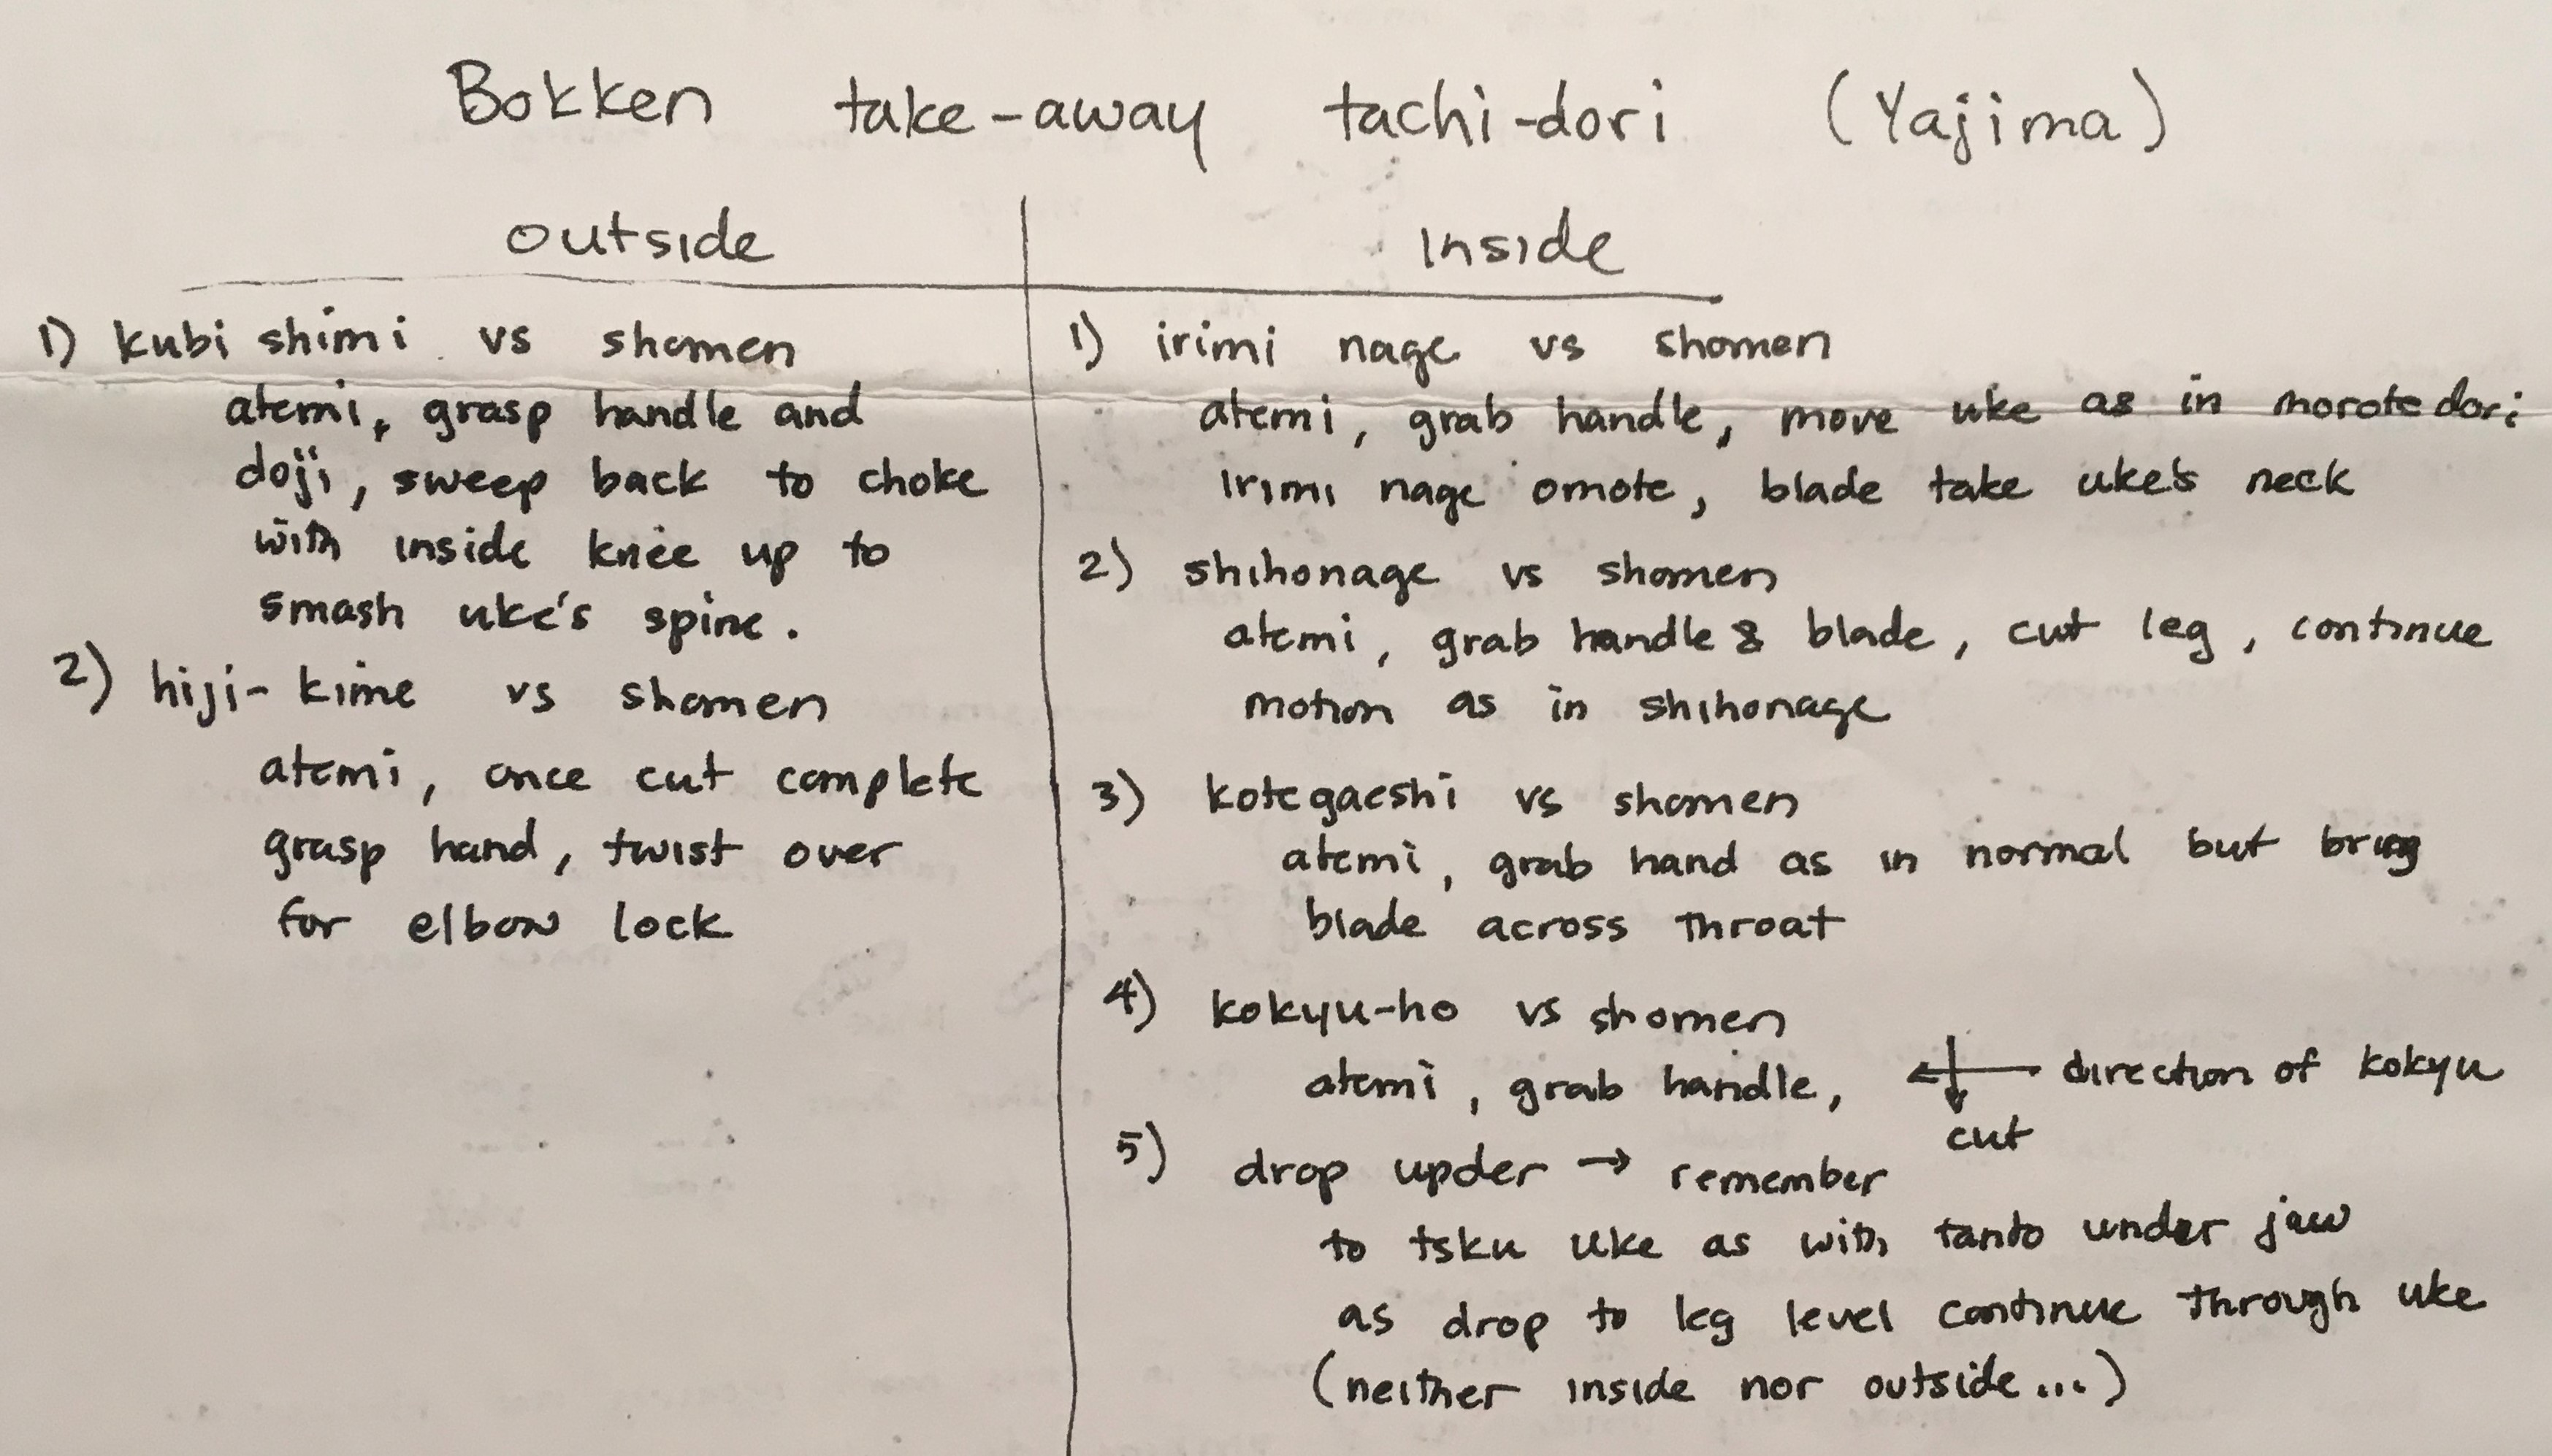 Bokken take-away tachi-dori (Yajima)
outside
inside
1) kubi shimi vs shomen
atemi, grasp handle and
doji, sweep back to choke
with inside knee up to
smash uke's spine.
2) hiji-kime vs shomen
atemi, once cut complete
grasp hand, twist over
for elbow lock
1) irimi nage vs shomen
atemi, grab handle, move uke as in morote dori
irimi nage omote, blade take uke's neck
2) shihonage vs shomen
atemi, grab handle & blade, cut leg, continue
motion as in shihonage
3) kotegaeshi vs shomen
atemi, grab hand as in normal but bring
blade across throat
4) kokyu-ho vs shomen
atemi, grab handle, ← direction of kokyu
↓ cut
5) drop upder → remember
to tsku uke as with tanto under jaw
as drop to leg level continue through uke
(neither inside nor outside...)